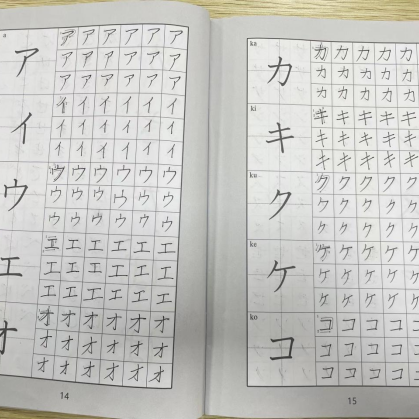 a
ア ア ア ア ア ア ア
ア ア ア ア ア ア
ア ア ア ア ア ア
イ イ イ イ イ イ イ
イ イ イ イ イ イ
イ イ イ イ イ イ
ウ ウ ウ ウ ウ ウ ウ
ウ ウ ウ ウ ウ ウ
ウ ウ ウ ウ ウ ウ
エ エ エ エ エ エ エ
エ エ エ エ エ エ
エ エ エ エ エ エ
オ オ オ オ オ オ オ
オ オ オ オ オ オ
オ オ オ オ オ オ
14
ka
カ カ カ カ カ カ
カ カ カ カ カ
カ カ カ カ カ
ki
キ キ キ キ キ キ
キ キ キ キ キ
キ キ キ キ キ
ku
ク ク ク ク ク ク
ク ク ク ク ク
ク ク ク ク ク
ke
ケ ケ ケ ケ ケ ケ
ケ ケ ケ ケ ケ
ケ ケ ケ ケ ケ
ko
コ コ コ コ コ コ
コ コ コ コ コ
コ コ コ コ コ
15